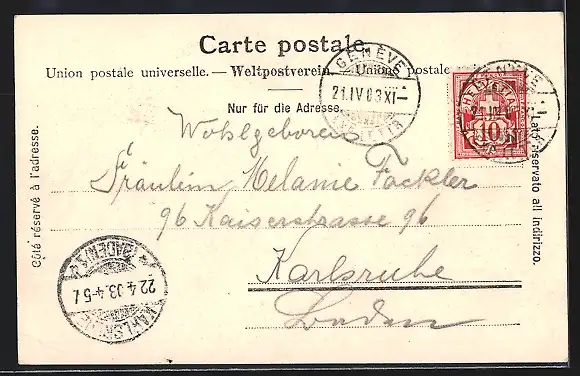 Carte postale.
Union postale universelle. — Weltpostverein. — Unione postale
Nur für die Adresse.
Côté réservé à l'adresse.
Lato riservato all indirizzo.
GENÈVE
21.IV 03 XI–
LETTRES
HELVETIA
10
Wohlgeboren
Fräulein Melanie Fackler
96 Kaiserstrasse 96
Karlsruhe
Baden
KARLSRUHE
22.4.03.4-5
(BADEN)